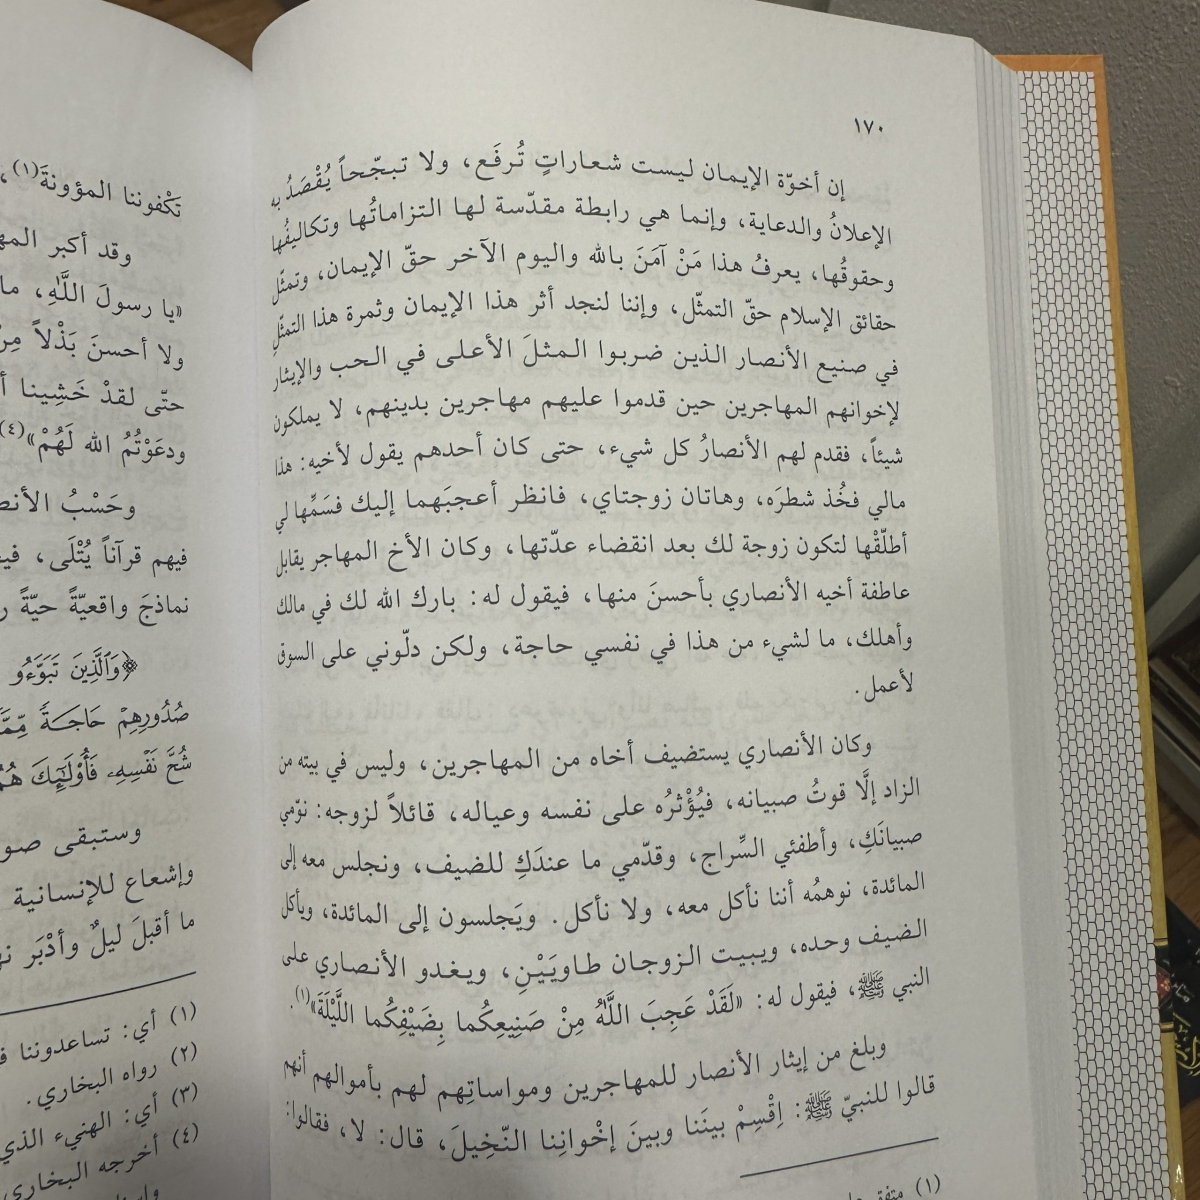 ١٧٠
إن أخوّة الإيمان ليست شعاراتٍ تُرفَع، ولا تبجّحاً يُقْصَدُ به
الإعلانُ والدعاية، وإنما هي رابطة مقدّسة لها التزاماتُها وتكاليفُها
وحقوقُها، يعرفُ هذا مَنْ آمَنَ بالله واليوم الآخر حقّ الإيمان، وتمثّل
حقائق الإسلام حقّ التمثّل، وإننا لنجد أثر هذا الإيمان وثمرة هذا التمثّلِ
في صنيع الأنصار الذين ضربوا المثلَ الأعلى في الحب والإيثار
لإخوانهم المهاجرين حين قدموا عليهم مهاجرين بدينهم، لا يملكون
شيئاً، فقدم لهم الأنصارُ كل شيء، حتى كان أحدهم يقول لأخيه: هذا
مالي فخُذ شطرَه، وهاتان زوجتاي، فانظر أعجبَهما إليك فسَمِّها لي
أطلّقْها لتكون زوجة لك بعد انقضاء عدّتها، وكان الأخ المهاجر يقابل
عاطفة أخيه الأنصاري بأحسنَ منها، فيقول له: بارك الله لك في مالك
وأهلك، ما لشيء من هذا في نفسي حاجة، ولكن دلّوني على السوق
لأعمل.
وكان الأنصاري يستضيف أخاه من المهاجرين، وليس في بيته من
الزاد إلَّا قوتُ صبيانه، فيُؤْثرُه على نفسه وعياله، قائلاً لزوجه: نوّمي
صبيانَكِ، وأطفئي السِّراج، وقدّمي ما عندَكِ للضيف، ونجلس معه إلى
المائدة، نوهمُه أننا نأكل معه، ولا نأكل. ويَجلسون إلى المائدة، ويأكل
الضيف وحده، ويبيت الزوجان طاويَيْنِ، ويغدو الأنصاري على
النبي ﷺ، فيقول له: «لَقَدْ عَجِبَ اللَّهُ مِنْ صَنِيعِكُما بِضَيْفِكُما اللَّيْلَةَ»(١).
وبلغ من إيثار الأنصار للمهاجرين ومواساتِهم لهم بأموالهم أنهم
قالوا للنبيّ ﷺ: اِقْسِمْ بينَنا وبينَ إخْوانِنا النّخِيلَ، قال: لا، فقالوا:
(١) متفق
تَكْفوننا المؤونةَ(١)،
وقد أكبر
«يا رسولَ اللَّهِ، ما
ولا أحسنَ بَذْلاً مِنْ
حتّى لقدْ خَشِينا
ودعَوْتُمُ الله لَهُمْ»(٤)
وحَسْبُ
فيهم قرآناً يُتْلَى،
نماذجَ واقعيّةً حيّةً
﴿وَٱلَّذِينَ تَبَوَّءُو
صُدُورِهِمْ حَاجَةً مِّمَّا
شُحَّ نَفْسِهِۦ فَأُوْلَـٰٓئِكَ هُمُ
وستبقى
وإشعاع للإنسانية
ما أقبلَ ليلٌ وأدْبَر
(١) أي: تساعدوننا
(٢) رواه البخاري.
(٣) أي: الهنيء الذي
(٤) أخرجه البخاري